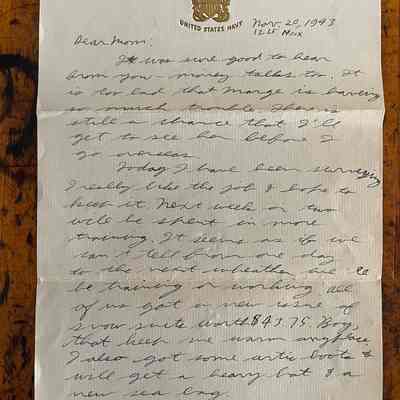 UNITED STATES NAVY
Nov. 20, 1943
Dear Mom:
It was sure good to hear
from you - money talks too. It
is too bad that Marge is having
so much trouble. There is
still a chance that I'll
get to see her before I
go overseas.
Today I have been surveying
I really like the job & hope to
keep it. Next week or two
will be spent in more
training. It seems as if we
can't tell from one day
to the next wheather we'll
be training or working. All
of us got a new issue of
snow suits worth $43.75. Boy,
that keep me warm anyplace
I also got some artic boots &
will get a heavy hat & a
new sea bag.